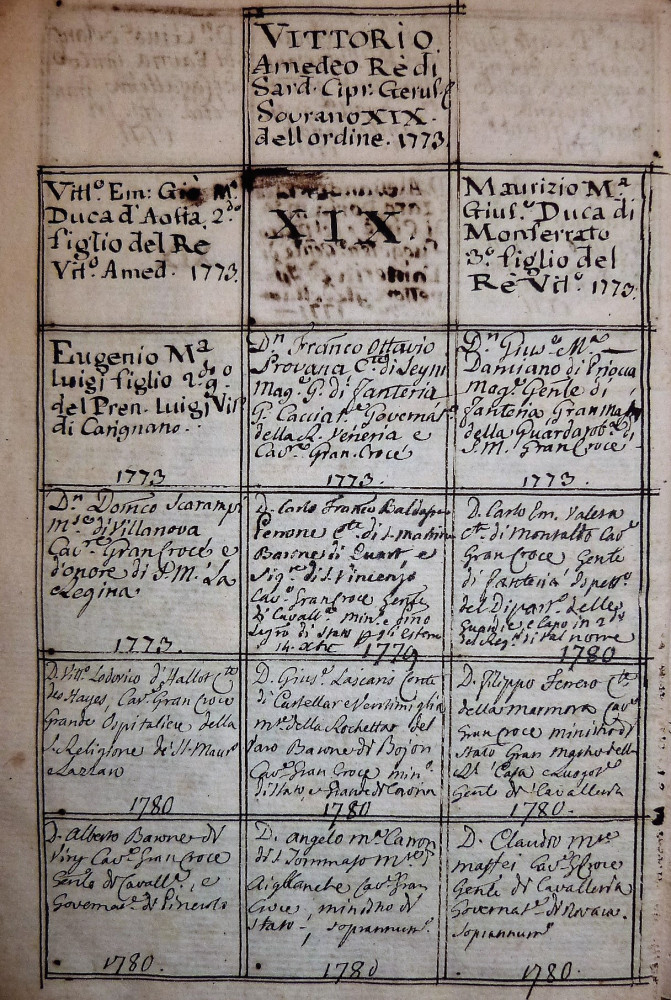 VITTORIO
Amedeo Rè di
Sard. Cipr. Gerus.
Sovrano XIX.
dell ordine. 1773.
Vitt.º Em: Gio Mª
Duca d'Aosta. 2.do
figlio del Re
Vit.º Amed. 1773.
XIX.
Maurizio Mª
Gius.º Duca di
Monferrato
3º figlio del
Rè Vit.º 1773.
Eugenio Mª
luigi figlio 2.do
del Pren. Luigi Vit.º
di Carignano.
1773
D.n Franco Ottavio
Provana C.te di Leyni
Mag.e G. di fanteria
G. Cacciat.e Governat.e
della R. Veneria e
Cav.e Gran Croce
1773.
D.n Gius.e Mª
Damiano di Priocca
Mag.e Gente di
fanteria Gran Mas
della Guardarob.ª di
S.M. Gran Croce
1773.
D.n Domco Scarampi
M.se di Villanova
Cav.re Gran Croce e
d'onore di S.M. La
Regina
1773.
D. Carlo Franco Baldassar
Perrone C.te di S. Martino
Barone di Quart e
Sig.re di S. Vincenzo
Cav.e Gran Croce Gente
di Cavall.a Min.e e Pmo
Segro di Stato p gli Esteri
1779
D. Carlo Em. Valesa
C.te di Montaldo Cav.e
Gran Croce Gente
di fanteria Ispett.e
del Dipart.o delle
Guardie e Capo in 2.do
del Reg.to di tal nome
1780
D. Vitt.º Lodovico d'Hallot C.te
des Hayes, Cav.e Gran Croce
Grande Ospitaliere della
S. Religione di S. Maur.º
e Lazaro
1780
D. Gius.e Lascaris Conte
di Castellar e Ventimiglia
M.se della Rochetta del
Varo Barone di Bojon
Cav.e Gran Croce min.e
di Stato, e Grande di Corona
1780
D. Filippo Ferrero C.te
della Marmora Cav.e
Gran Croce ministro di
Stato Gran mastro della
R. Casa e Luogot.e
Gente di Cavalleria
1780.
D. Alberto Barone di
Viry Cav.e Gran Croce
Gente di Cavall.a, e
Governat.e di Pinerolo
1780.
D. Angelo Mª Carron
di S. Tommaso M.se d
Aigueblanche Cav.e Gran
Croce, ministro di
Stato, soprannum.º
1780
D. Claudio M.se
Maffei Cav.e G. Croce
Gente di Cavalleria
Governat.e di Novara.
soprannum.º
1780.